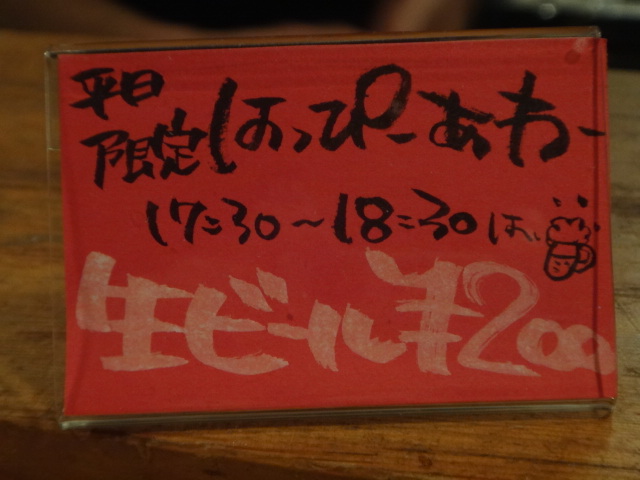 平日
限定
はっぴーあわー
17:30～18:30は、
生ビール¥200